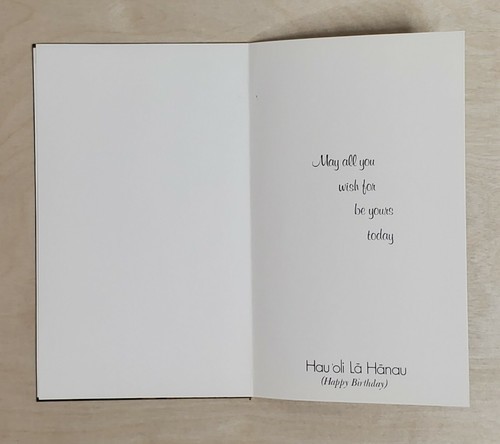 May all you
wish for
be yours
today
Hauʻoli Lā Hānau
(Happy Birthday)